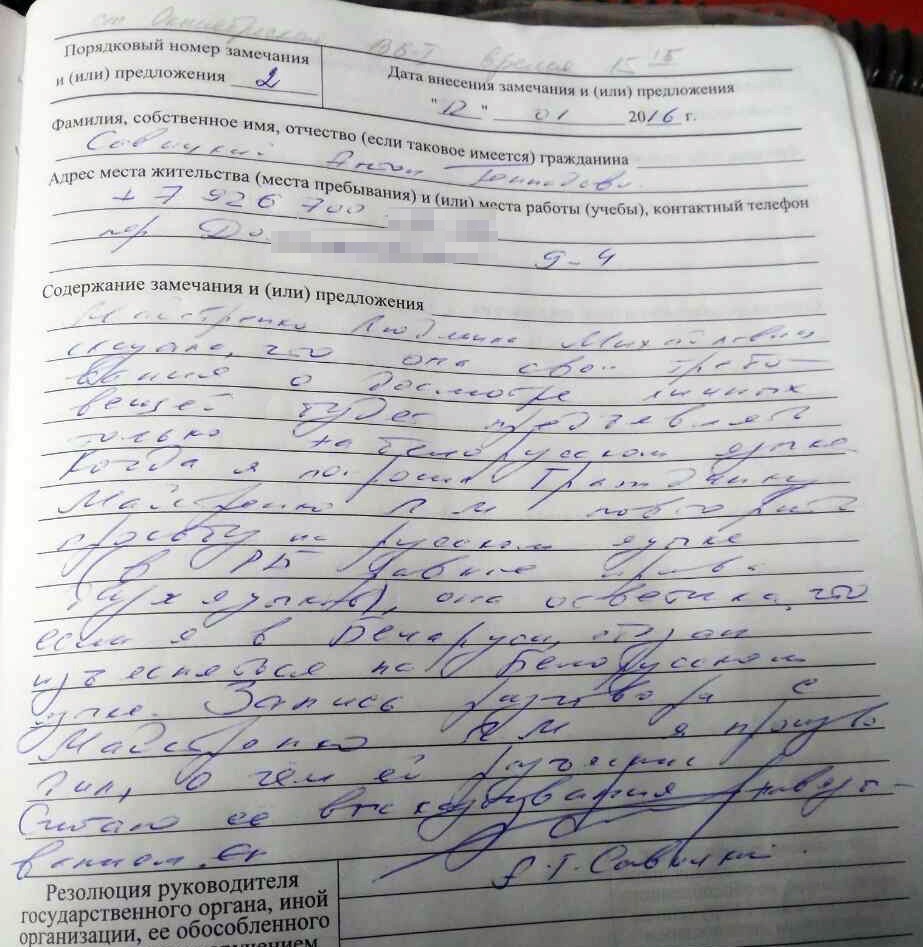 ст. Октябрьская ВБ-Т время 15 15
Порядковый номер замечания
и (или) предложения 2
Дата внесения замечания и (или) предложения
"12" 01 2016 г.
Фамилия, собственное имя, отчество (если таковое имеется) гражданина
Савицкий Антон
Адрес места жительства (места пребывания) и (или) места работы (учебы), контактный телефон
+ 7 926 700
пер До 9-4
Содержание замечания и (или) предложения
Майстренко Людмила Михайловна
сказала, что она свои требо-
вания о досмотре личных
вещей будет предъявлять
только на белорусском языке.
Когда я попросил гражданку
Майстренко Л М повторить
просьбу на русском языке
(в РБ равные права
двух языков), она ответила, что
если я в Беларуси, обязан
изъясняться на белорусском
языке. Запись разговора с
Майстренко ЛМ я произво
дил, о чем ей разъяснил
Считаю её высказывания
А.Г. Савицкий
Резолюция руководителя
государственного органа, иной
организации, ее обособленного